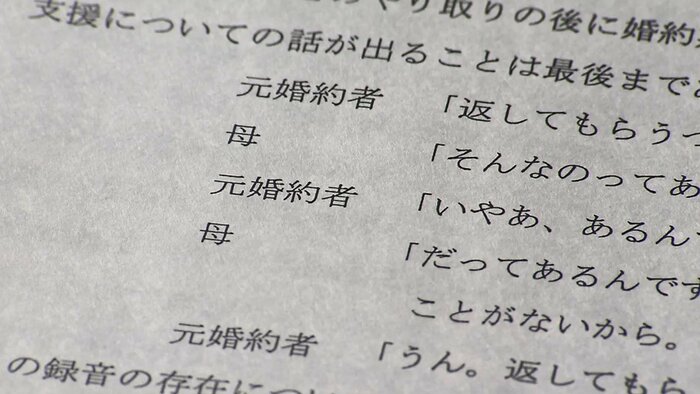 やり取りの後に婚約
支援についての話が出ることは最後まで
元婚約者 「返してもらうつ
母 「そんなのってあ
元婚約者 「いやあ、あるん
母 「だってあるんです
ことがないから。
元婚約者 「うん。返してもら
の録音の存在につい